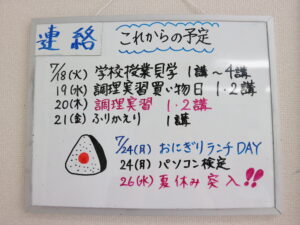 連絡
これからの予定
7/18(火) 学校授業見学 1講～4講
19(水) 調理実習買い物日 1・2講
20(木) 調理実習 1・2講
21(金) ふりかえり 1講
7/24(月) おにぎりランチDAY
24(月) パソコン検定
26(水) 夏休み突入!!